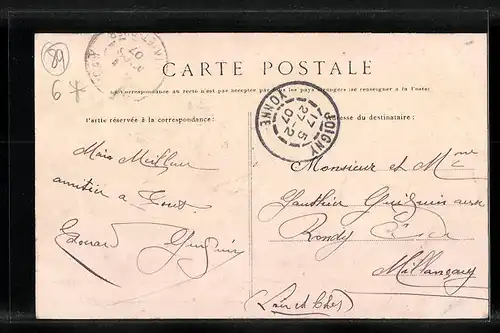 89
6 *
CARTE POSTALE
La correspondance au recto n'est pas acceptée par tous les pays étrangers (se renseigner à la Poste)
JOIGNY
17 - 5
27 - 2
07
YONNE
Partie réservée à la correspondance:
Adresse du destinataire:
Mais Meilleur
amitier a Tout
Edouard Guiguin
Monsieur et Mme
Gauthier Guiguin aux
Rondy
Millançay
(Loir et Cher)